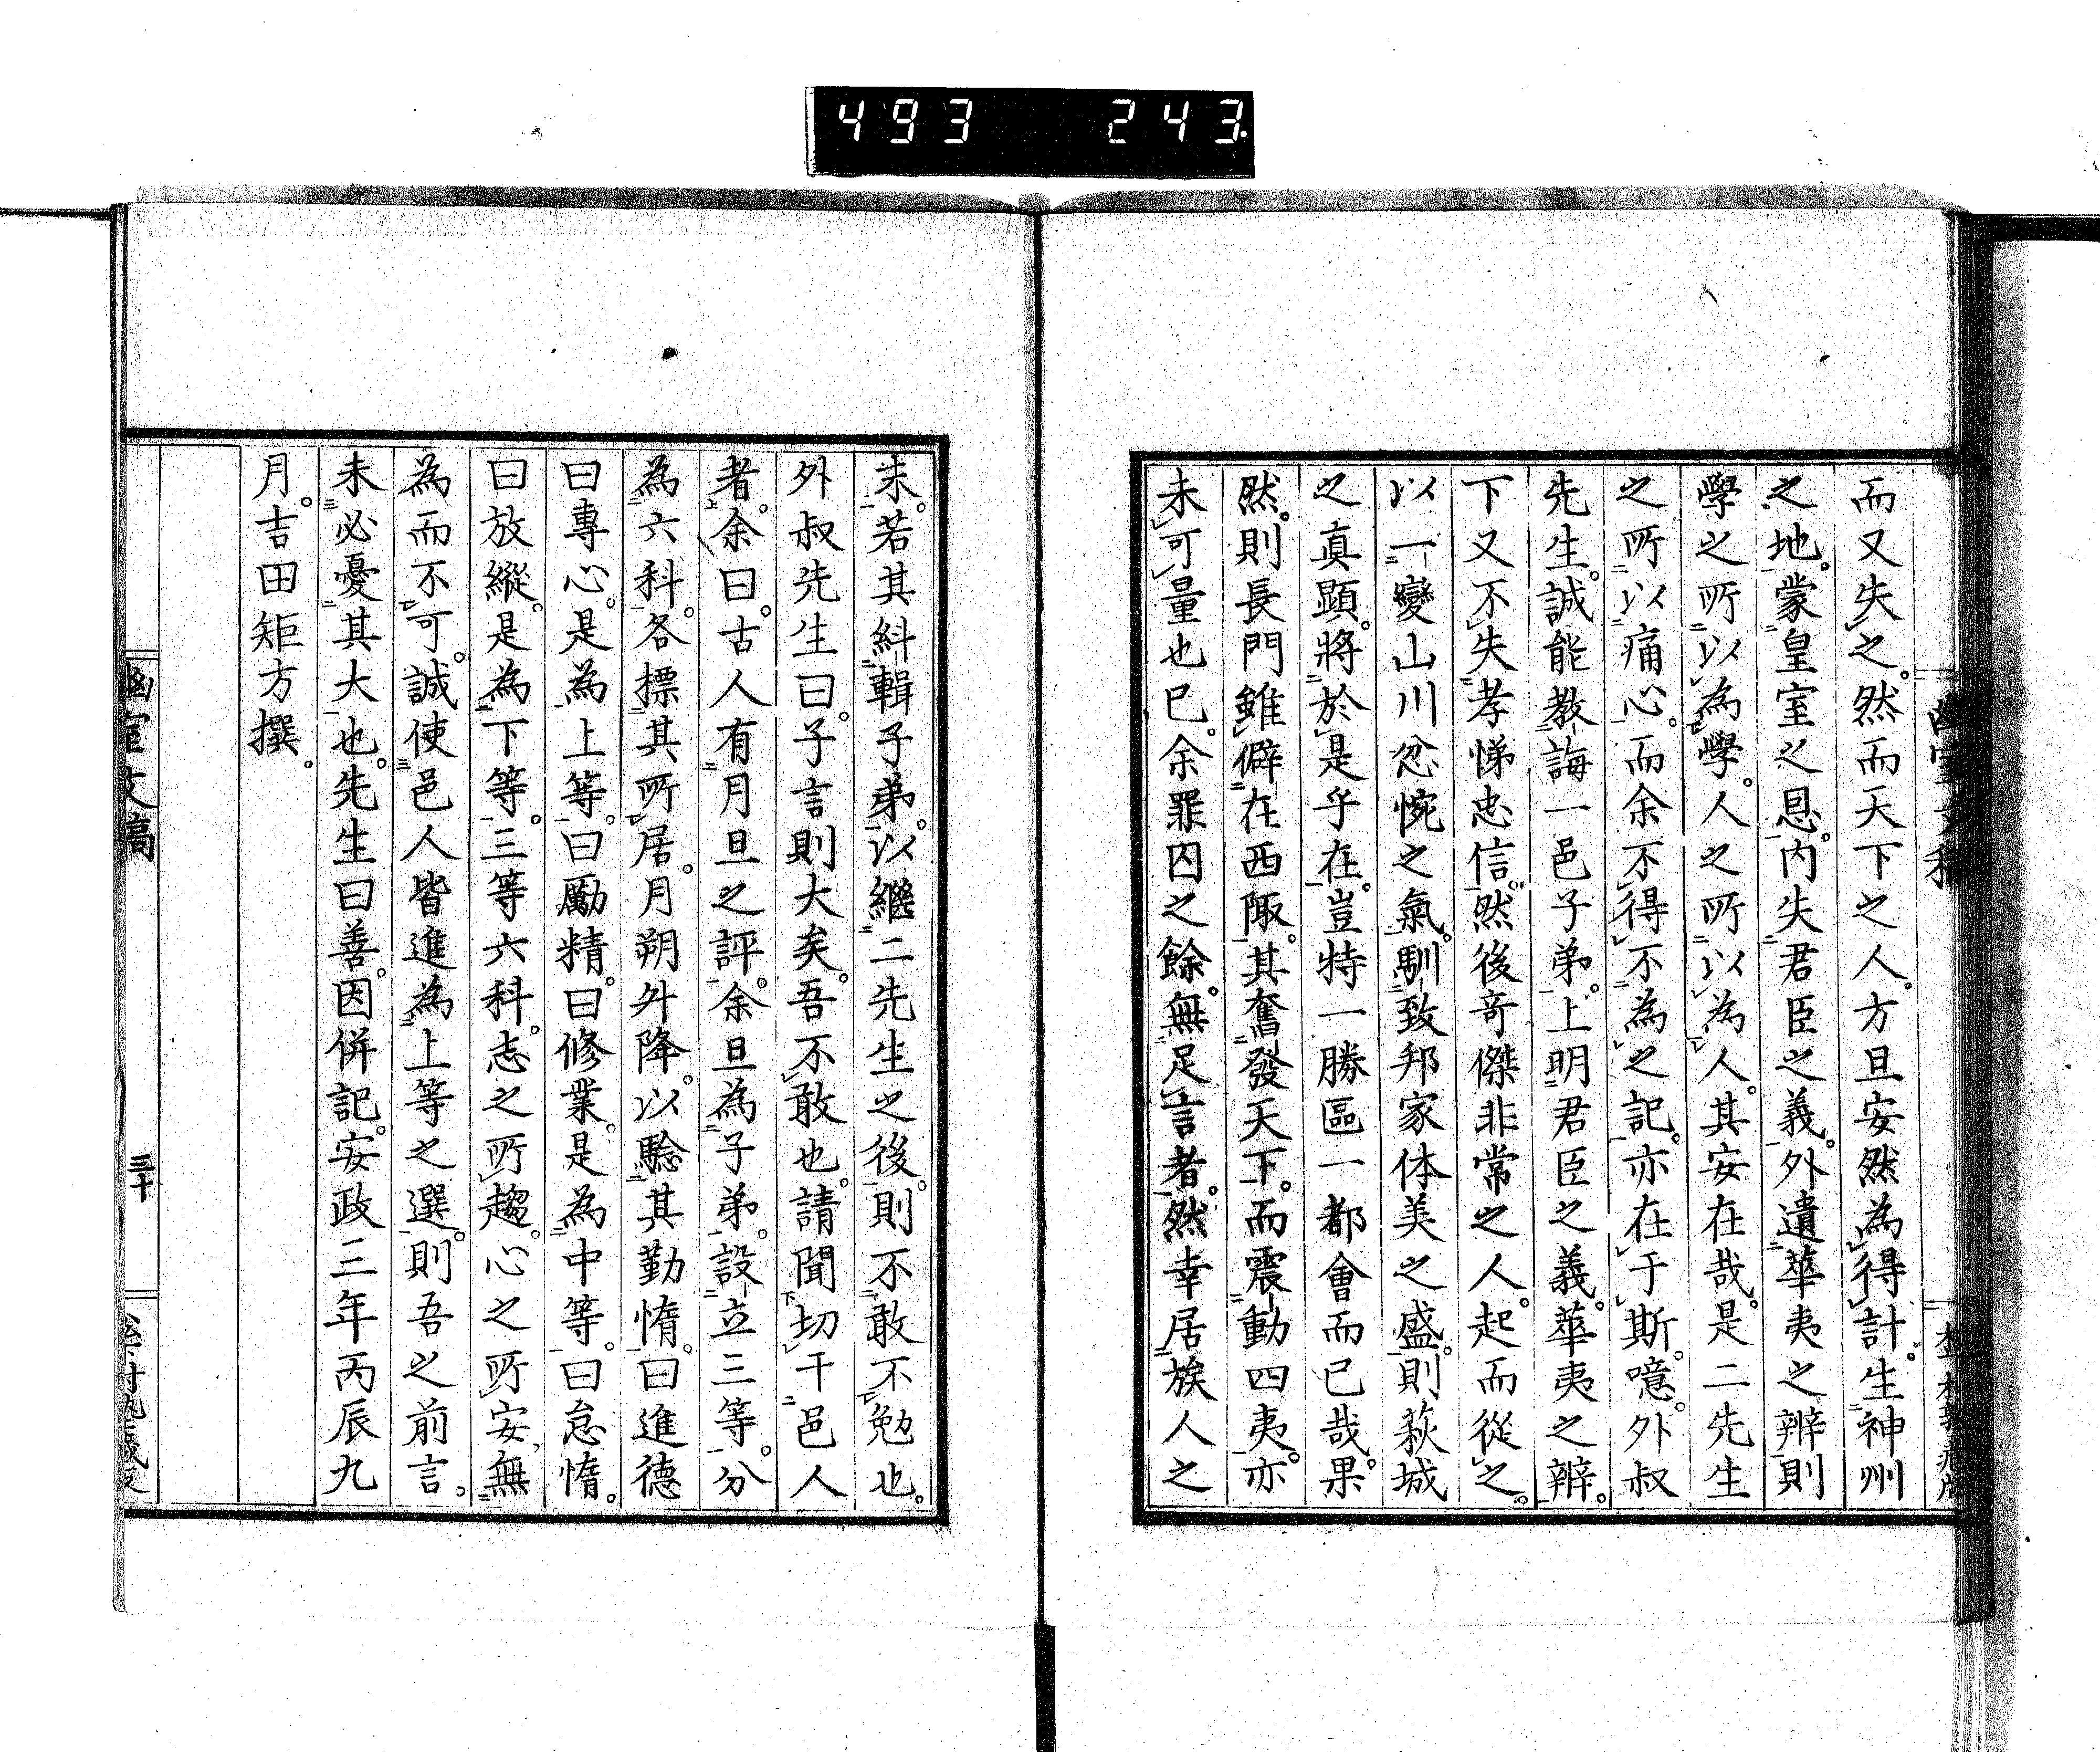 493 243
而又失之。然而天下之人。方且安然為得計。生神州
之地。蒙皇室之恩。内失君臣之義。外遺華夷之辨則
學之所以為學。人之所以為人。其安在哉。是二先生
之所以痛心。而余不得不為之記。亦在于斯。噫。外叔
先生。誠能教誨一邑子弟。上明君臣之義。華夷之辨。
下又不失孝悌忠信。然後奇傑非常之人。起而從之。
以一變山川忿惋之氣。馴致邦家休美之盛。則萩城
之真顕。將於是乎在。豈特一勝區一都會而已哉。果
然。則長門雖僻在西陬。其奮發天下。而震動四夷。亦
未可量也已。余罪囚之餘。無足言者。然幸居族人之
末。若其糾輯子弟。以繼二先生之後。則不敢不勉也。
外叔先生曰。子言則大矣。吾不敢也。請聞切于邑人
者。余曰。古人有月旦之評。余且為子弟。設立三等。分
為六科。各標其所居。月朔升降。以驗其勤惰。曰進德
曰專心。是為上等。曰勵精。曰修業。是為中等。曰怠惰。
曰放縦。是為下等。三等六科。志之所趨。心之所安、無
為而不可。誠使邑人皆進為上等之選。則吾之前言。
未必憂其大也。先生曰善。因併記。安政三年丙辰九
月。吉田矩方撰。
幽室文稿
三十